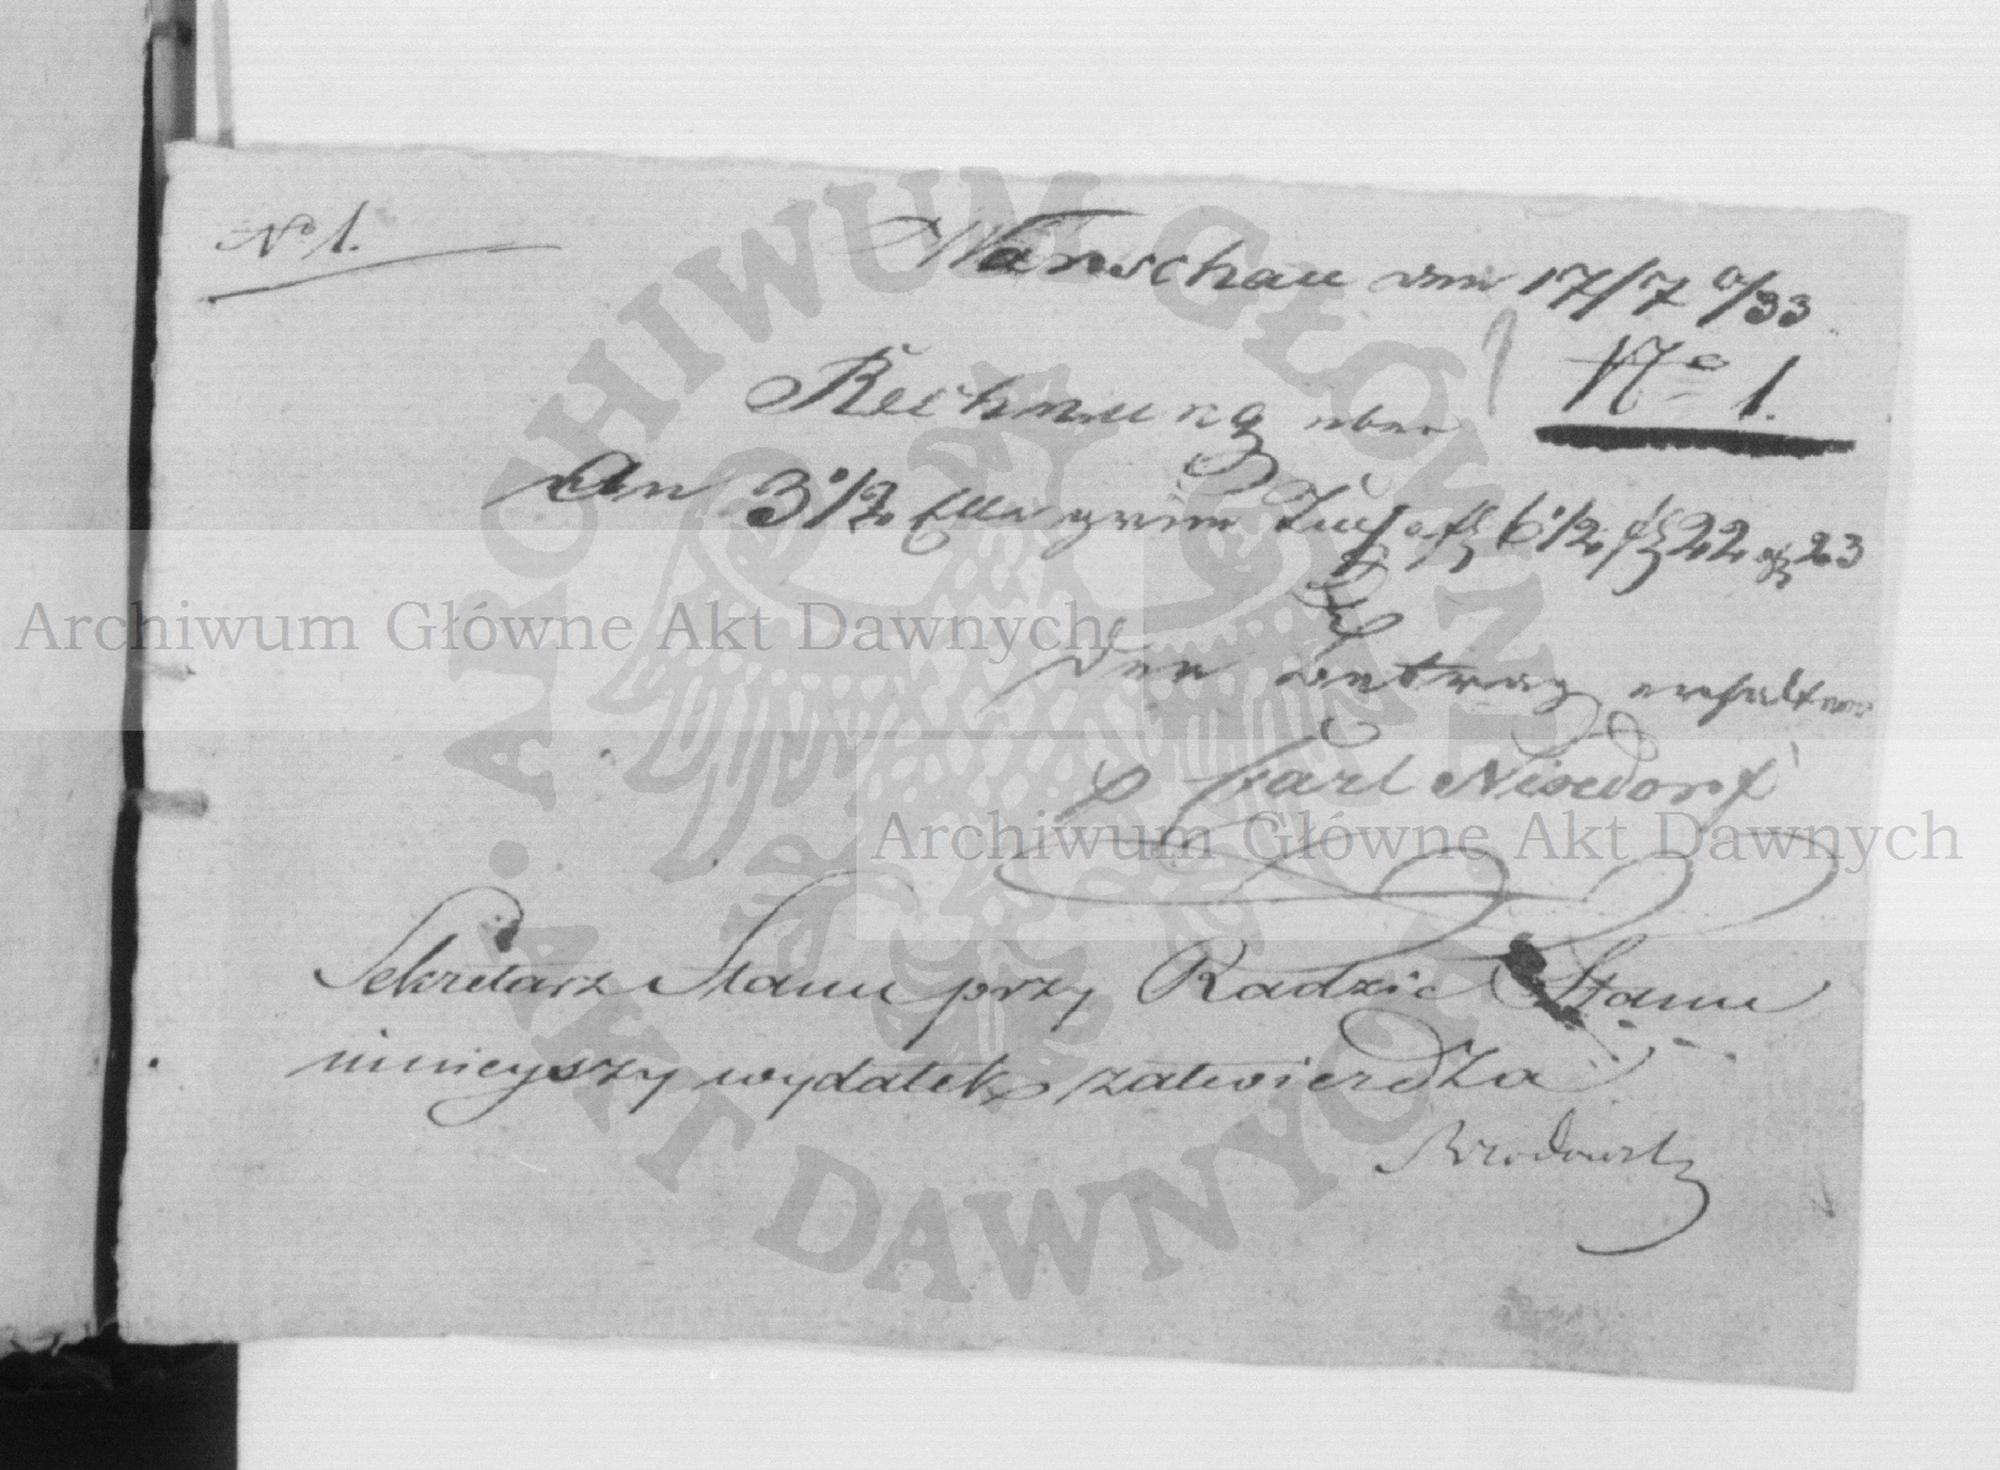 No 1.
Warschau den 17/7 a/33
No 1.
Rechnung über
An 3 1/2 Elle grün Tuch a f 6 1/2 f 22 g 23
Den Betrag erhalten
p Carl Nixdorf
Sekretarz Stanu przy Radzie Stanu
ninieyszy wydatek zatwierdza
Brodowski
Archiwum Główne Akt Dawnych
Archiwum Główne Akt Dawnych
ARCHIWUM GŁÓWNE
AKT DAWNYCH